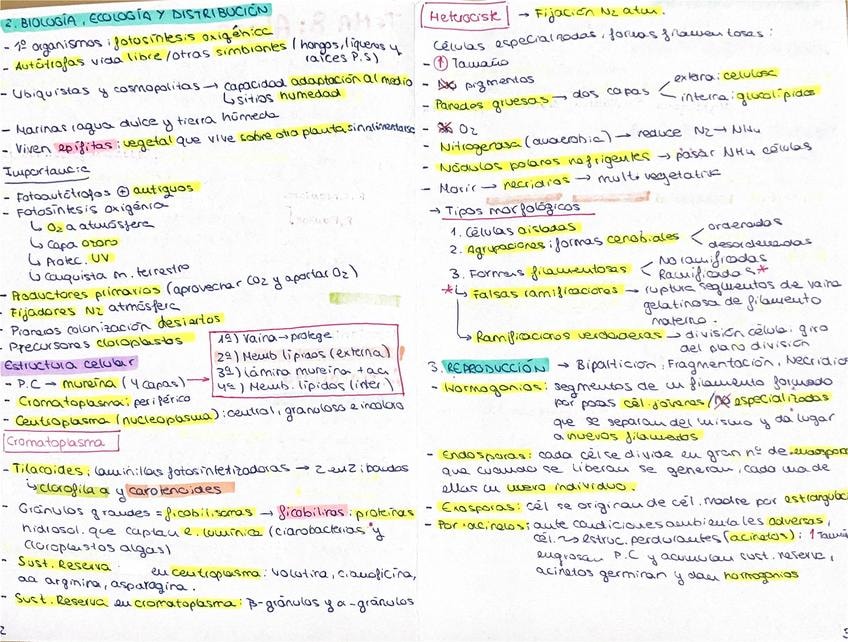 2. BIOLOGÍA, ECOLOGÍA Y DISTRIBUCIÓN
- 1º organismos: fotosíntesis oxigénica
- Autótrofas vida libre/otras simbiontes (hongos, líqueros y
raíces P.S)
- Ubiquistas y cosmopolitas → capacidad adaptación al medio
↳ sitios humedad
- Marinas agua dulce y tierra húmeda
- Viven epífitas: vegetal que vive sobre otra planta sin alimentarse
Importancia
- Fotoautótrofos ⊕ antiguos
- Fotosíntesis oxigénia
↳ O2 a atmósfera
↳ Capa ozono
↳ Protec. UV
↳ Conquista m. terrestro
- Productores primarios (aprovechar CO2 y aportar O2)
- Fijadores N2 atmósfera
- Pioneros colonización desiertos
- Precursores cloroplastos
Estructura celular
- P.C → mureína (4 capas) →
1º) Vaina → protege
2º) Memb lípidos (externa)
3º) Lámina mureína + aa
4º) Memb. lípidos (inter)
- Cromatoplasma: periférico
- Centroplasma (nucleoplasma): central, granuloso e incoloro
Cromatoplasma
- Tilacoides: laminillas fotosintetizadoras → 2 en 2 bandas
↳ clorofila a y carotenoides
- Gránulos grandes = ficobilisomas → ficobilinas: proteínas
hidrosol. que captan e. lumínica (cianobacterias y
cloroplastos algas)
- Sust. Reserva en centroplasma: volutina, cianoficina,
aa arginina, asparagina.
- Sust. Reserva en cromatoplasma: β-gránulos y α-gránulos
2
Heterocisk → Fijación N2 atm.
Células especializadas, formas filamentosas:
- ↑ Tamaño
- No pigmentos
- Paredes gruesas → dos capas < externa: celulosa
interna: glucolípidos
- No O2
- Nitrogenasa (anaerobia) → reduce N2 → NH4
- Nódulos polares refrigentes → pasar NH4 células
- Morir → necridios → mult vegetativa
→ Tipos morfológicos
1. Células aisladas
2. Agrupaciones: formas cenobiales < ordenadas
desordenadas
3. Formas filamentosas < No ramificadas
Ramificadas *
* ↳ Falsas ramificaciones → ruptura segmentos de vaina
gelatinosa de filamento
materno.
↳ Ramificaciones verdaderas → división célula: giro
del plano división
3. REPRODUCCIÓN → Bipartición: Fragmentación, Necridios
- Hormogonios: segmentos de un filamento formado
por pocas cél. jóvenes/no especializadas
que se separan del mismo y da lugar
a nuevos filamentos
- Endosporas: cada cél se divide en gran nº de endosporas
que cuando se liberan se generan, cada una de
ellas un nuevo individuo.
- Exosporas: cél se originan de cél. madre por estrangulac
- Por acinetos: ante condiciones ambientales adversas,
cél. → estruc. perdurantes (acinetos): ↑ Tamaño
engrosan P.C y acumulan sust. reserva,
acinetos germinan y dan hormogonios